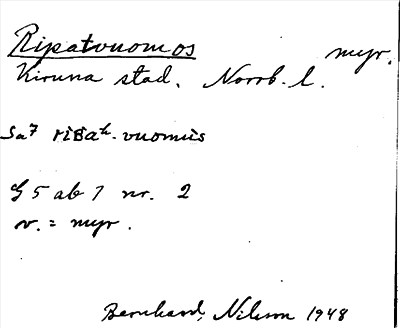 Ripatvuomos myr.
Kiruna stad. Norrb. l.
Sa⁷ ribah. vuomus
G 5 ab 7 nr. 2
v. = myr.
Bernhard, Nilsson 1948